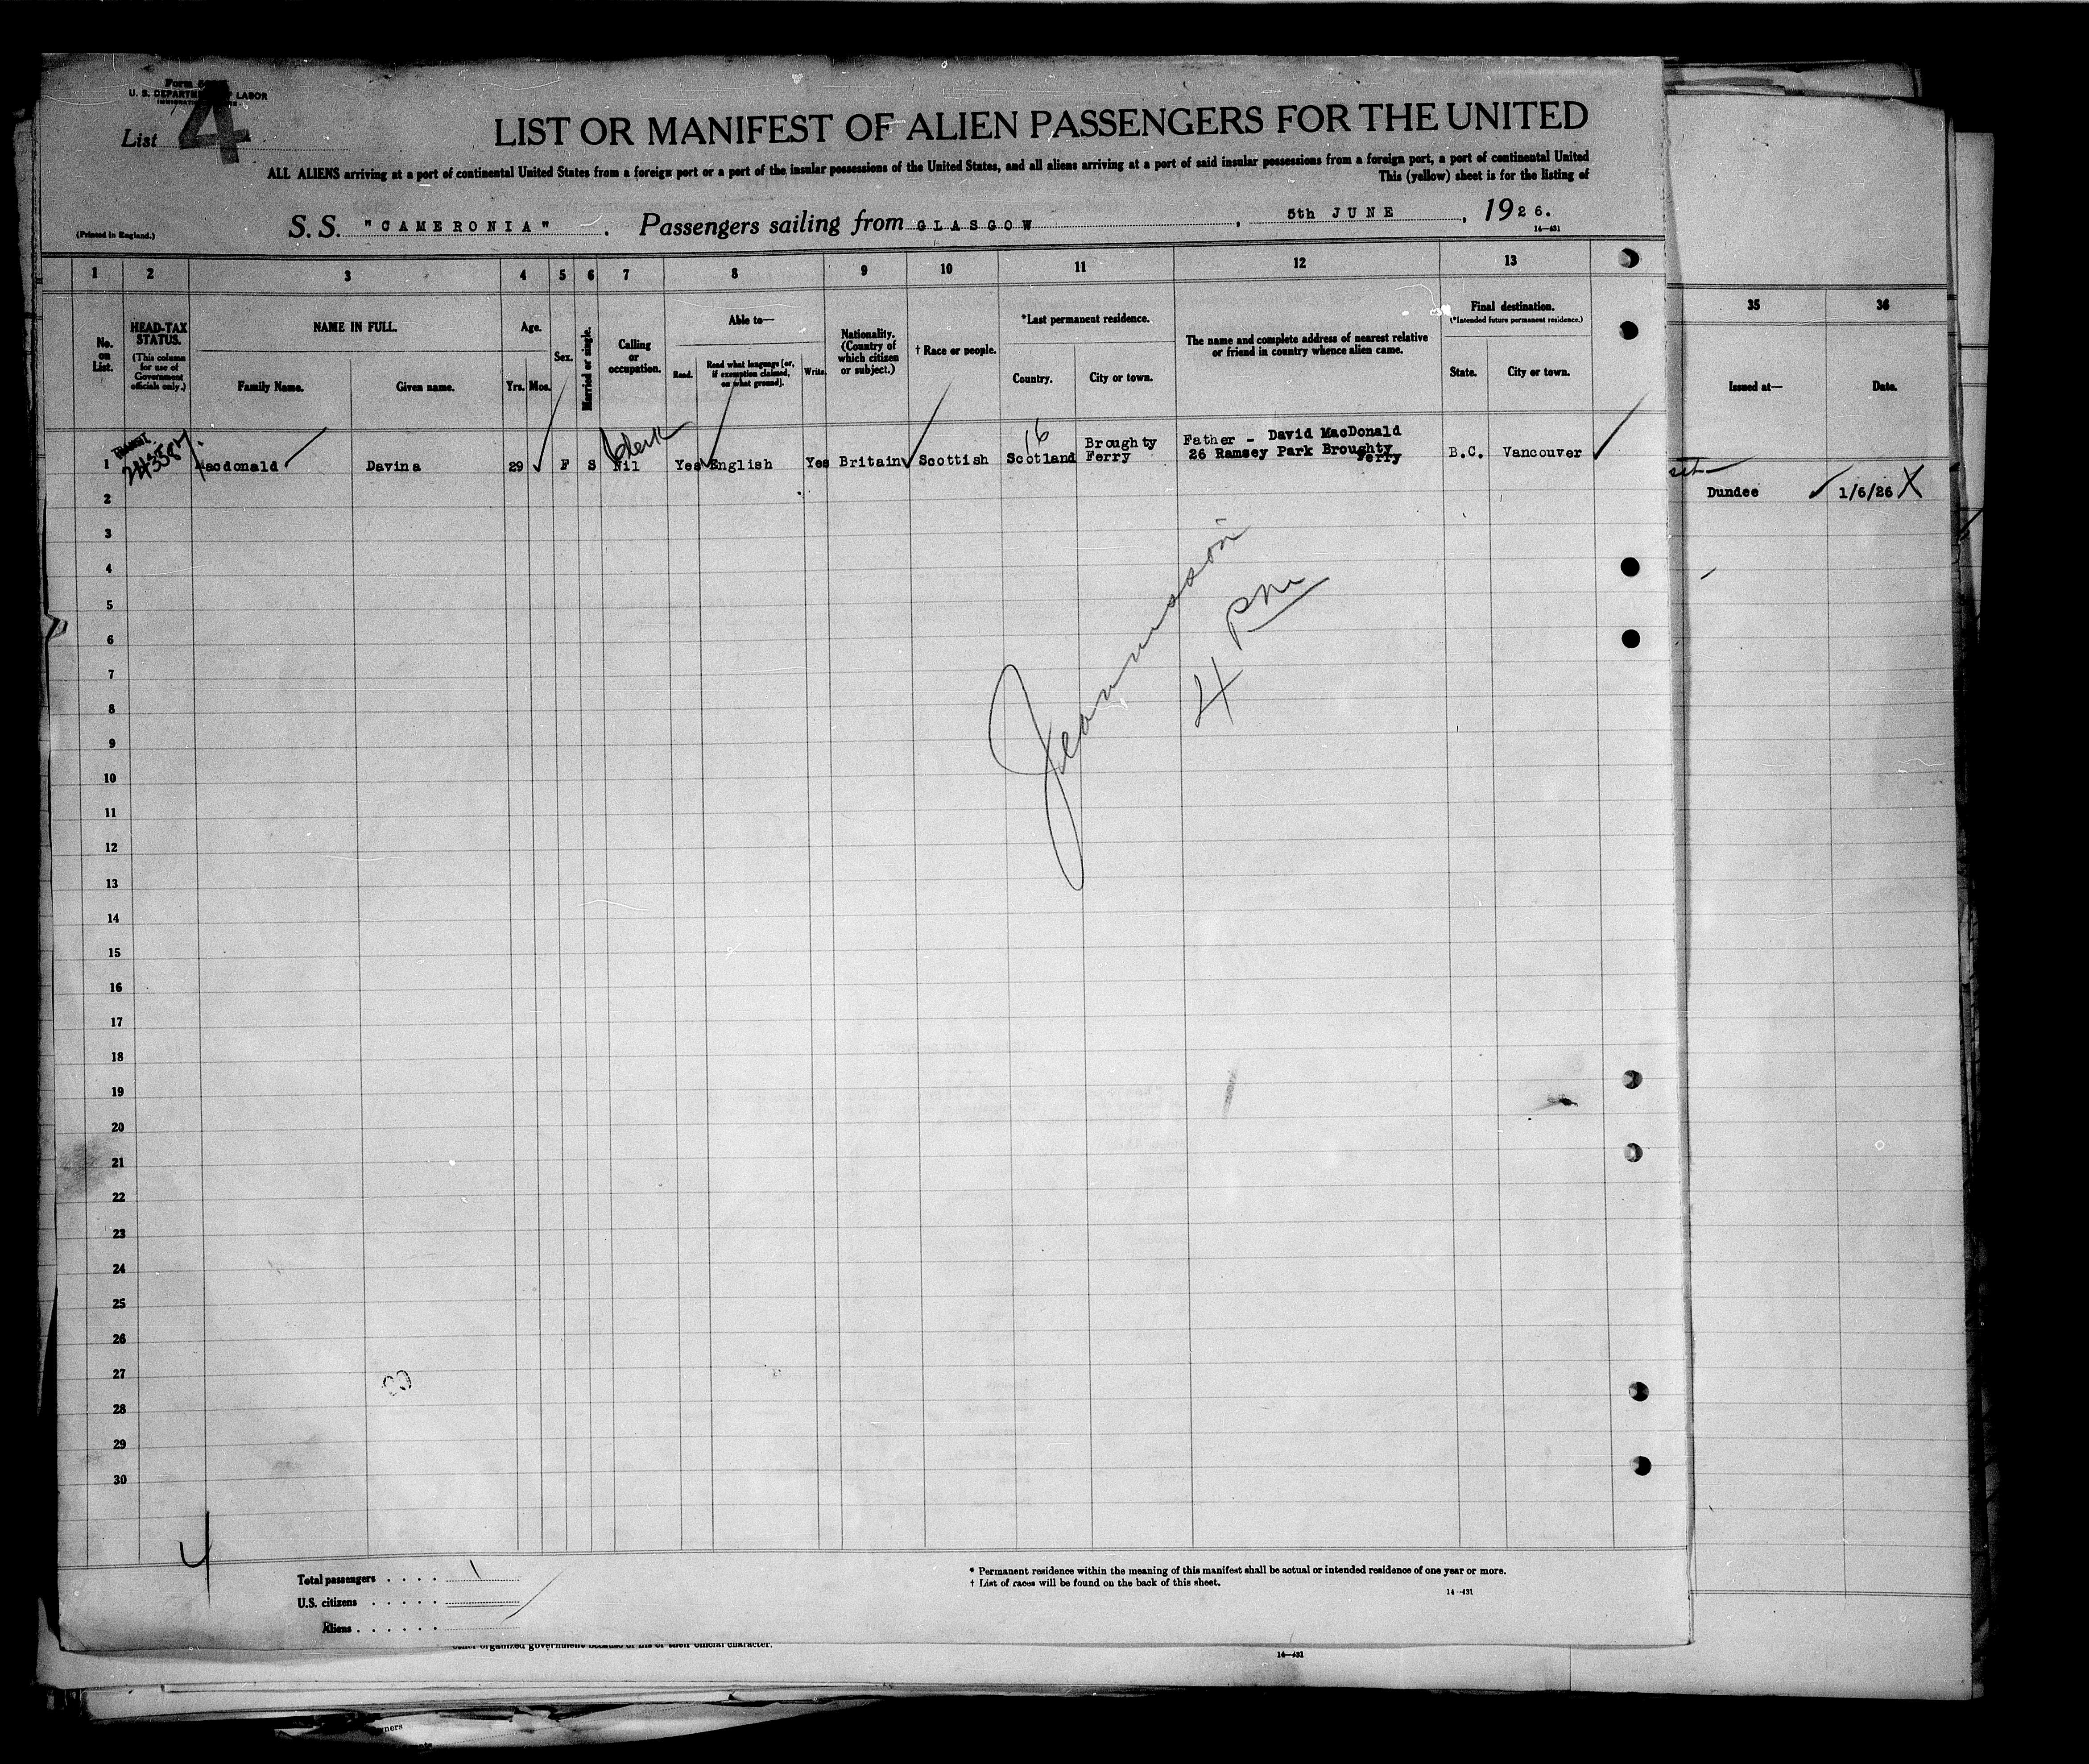 U. S. DEPARTMENT OF LABOR
List 4
LIST OR MANIFEST OF ALIEN PASSENGERS FOR THE UNITED
ALL ALIENS arriving at a port of continental United States from a foreign port or a port of the insular possessions of the United States, and all aliens arriving at a port of said insular possessions from a foreign port, a port of continental United
This (yellow) sheet is for the listing of
(Printed in England.)
S. S. "CAMERONIA" . Passengers sailing from GLASGOW , 5th JUNE , 1926.
14—431
1 2 3 4 5 6 7 8 9 10 11 12 13
35 36
No. on List.
HEAD-TAX STATUS.
(This column for use of Government officials only.)
NAME IN FULL.
Family Name. Given name.
Age.
Yrs. Mos.
Sex.
Married or single.
Calling or occupation.
Able to—
Read. Read what language [or, if exemption claimed, on what ground]. Write.
Nationality. (Country of which citizen or subject.)
† Race or people.
*Last permanent residence.
Country. City or town.
The name and complete address of nearest relative or friend in country whence alien came.
Final destination.
(*Intended future permanent residence.)
State. City or town.
Issued at— Date.
Clerk
16
1 Macdonald Davina 29 F S Nil Yes English Yes Britain Scottish Scotland Broughty Ferry Father - David MacDonald 26 Ramsey Park Broughty Ferry B.C. Vancouver
Dundee 1/6/26 X
2
3
4
5
6
7
8
9
10
11
12
13
14
15
16
17
18
19
20
21
22
23
24
25
26
27
28
29
30
4 PM
4
Total passengers . . . . 1
U.S. citizens . . . . .
Aliens . . . . . .
* Permanent residence within the meaning of this manifest shall be actual or intended residence of one year or more.
† List of races will be found on the back of this sheet.
14—431
other organized government because of his or their official character.
14—431